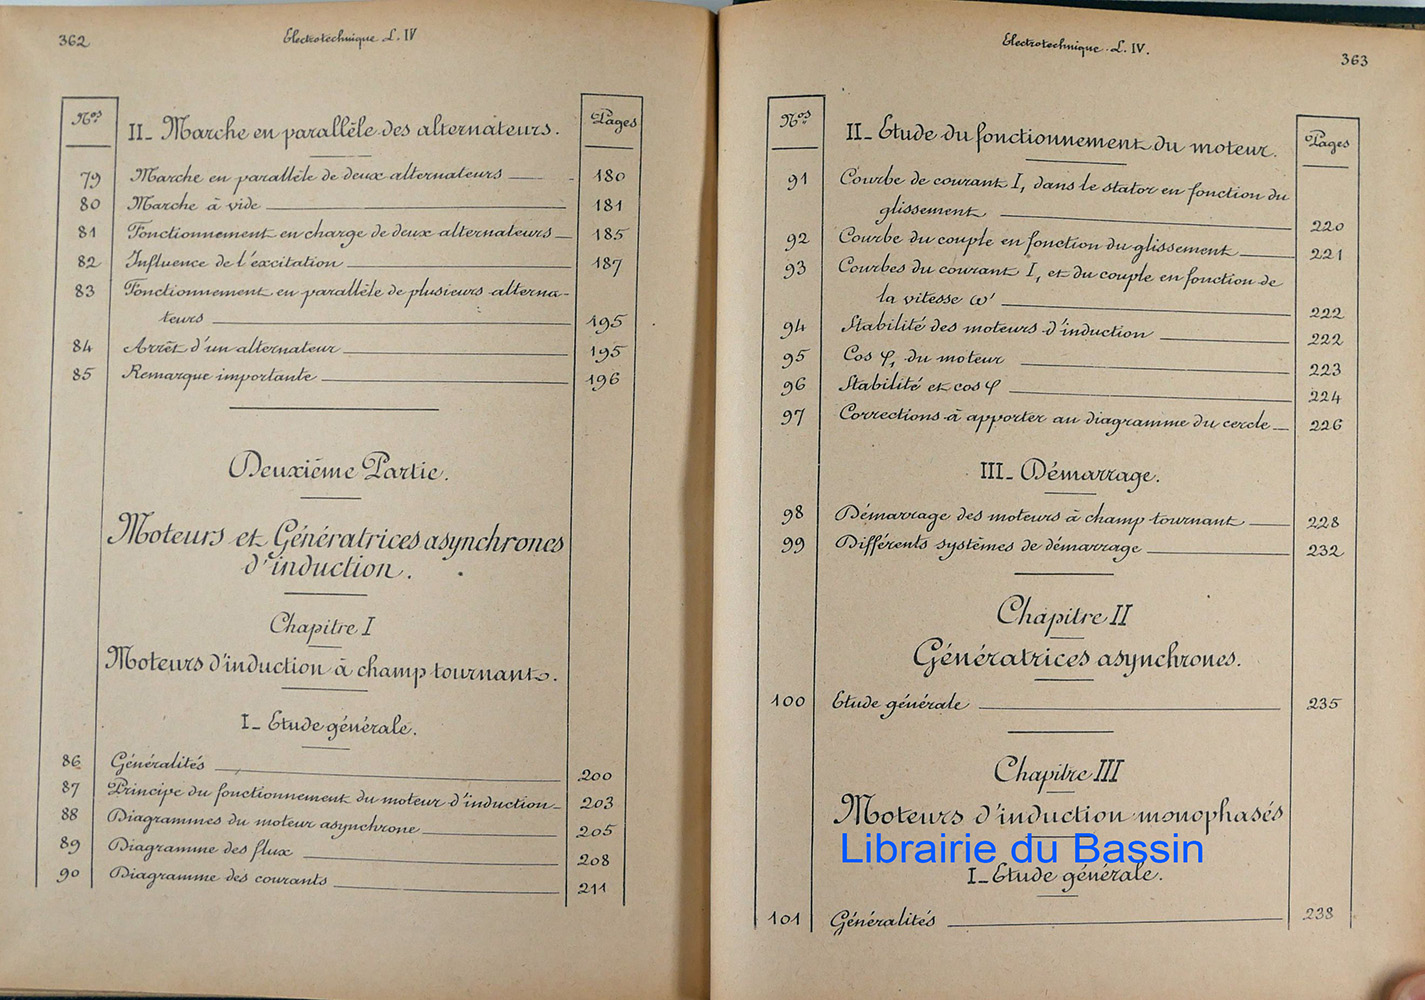 362
Electrotechnique L. IV
Nos
Pages
II_ Marche en parallèle des alternateurs.
79 Marche en parallèle de deux alternateurs 180
80 Marche à vide 181
81 Fonctionnement en charge de deux alternateurs 185
82 Influence de l'excitation 187
83 Fonctionnement en parallèle de plusieurs alterna-
teurs 195
84 Arrêt d'un alternateur 195
85 Remarque importante 196
Deuxième Partie.
Moteurs et Génératrices asynchrones
d'induction.
Chapitre I
Moteurs d'induction à champ tournant.
I_ Etude générale.
86 Généralités 200
87 Principe du fonctionnement du moteur d'induction 203
88 Diagrammes du moteur asynchrone 205
89 Diagramme des flux 208
90 Diagramme des courants 211
Electrotechnique L. IV.
363
Nos
Pages
II_ Etude du fonctionnement du moteur.
91 Courbe de courant I, dans le stator en fonction du
glissement 220
92 Courbe du couple en fonction du glissement 221
93 Courbes du courant I, et du couple en fonction de
la vitesse ω' 222
94 Stabilité des moteurs d'induction 222
95 Cos φ, du moteur 223
96 Stabilité et cos φ 224
97 Corrections à apporter au diagramme du cercle 226
III_ Démarrage.
98 Démarrage des moteurs à champ tournant 228
99 Différents systèmes de démarrage 232
Chapitre II
Génératrices asynchrones.
100 Etude générale 235
Chapitre III
Moteurs d'induction monophasés
Librairie du Bassin
I_ Etude générale.
101 Généralités 238